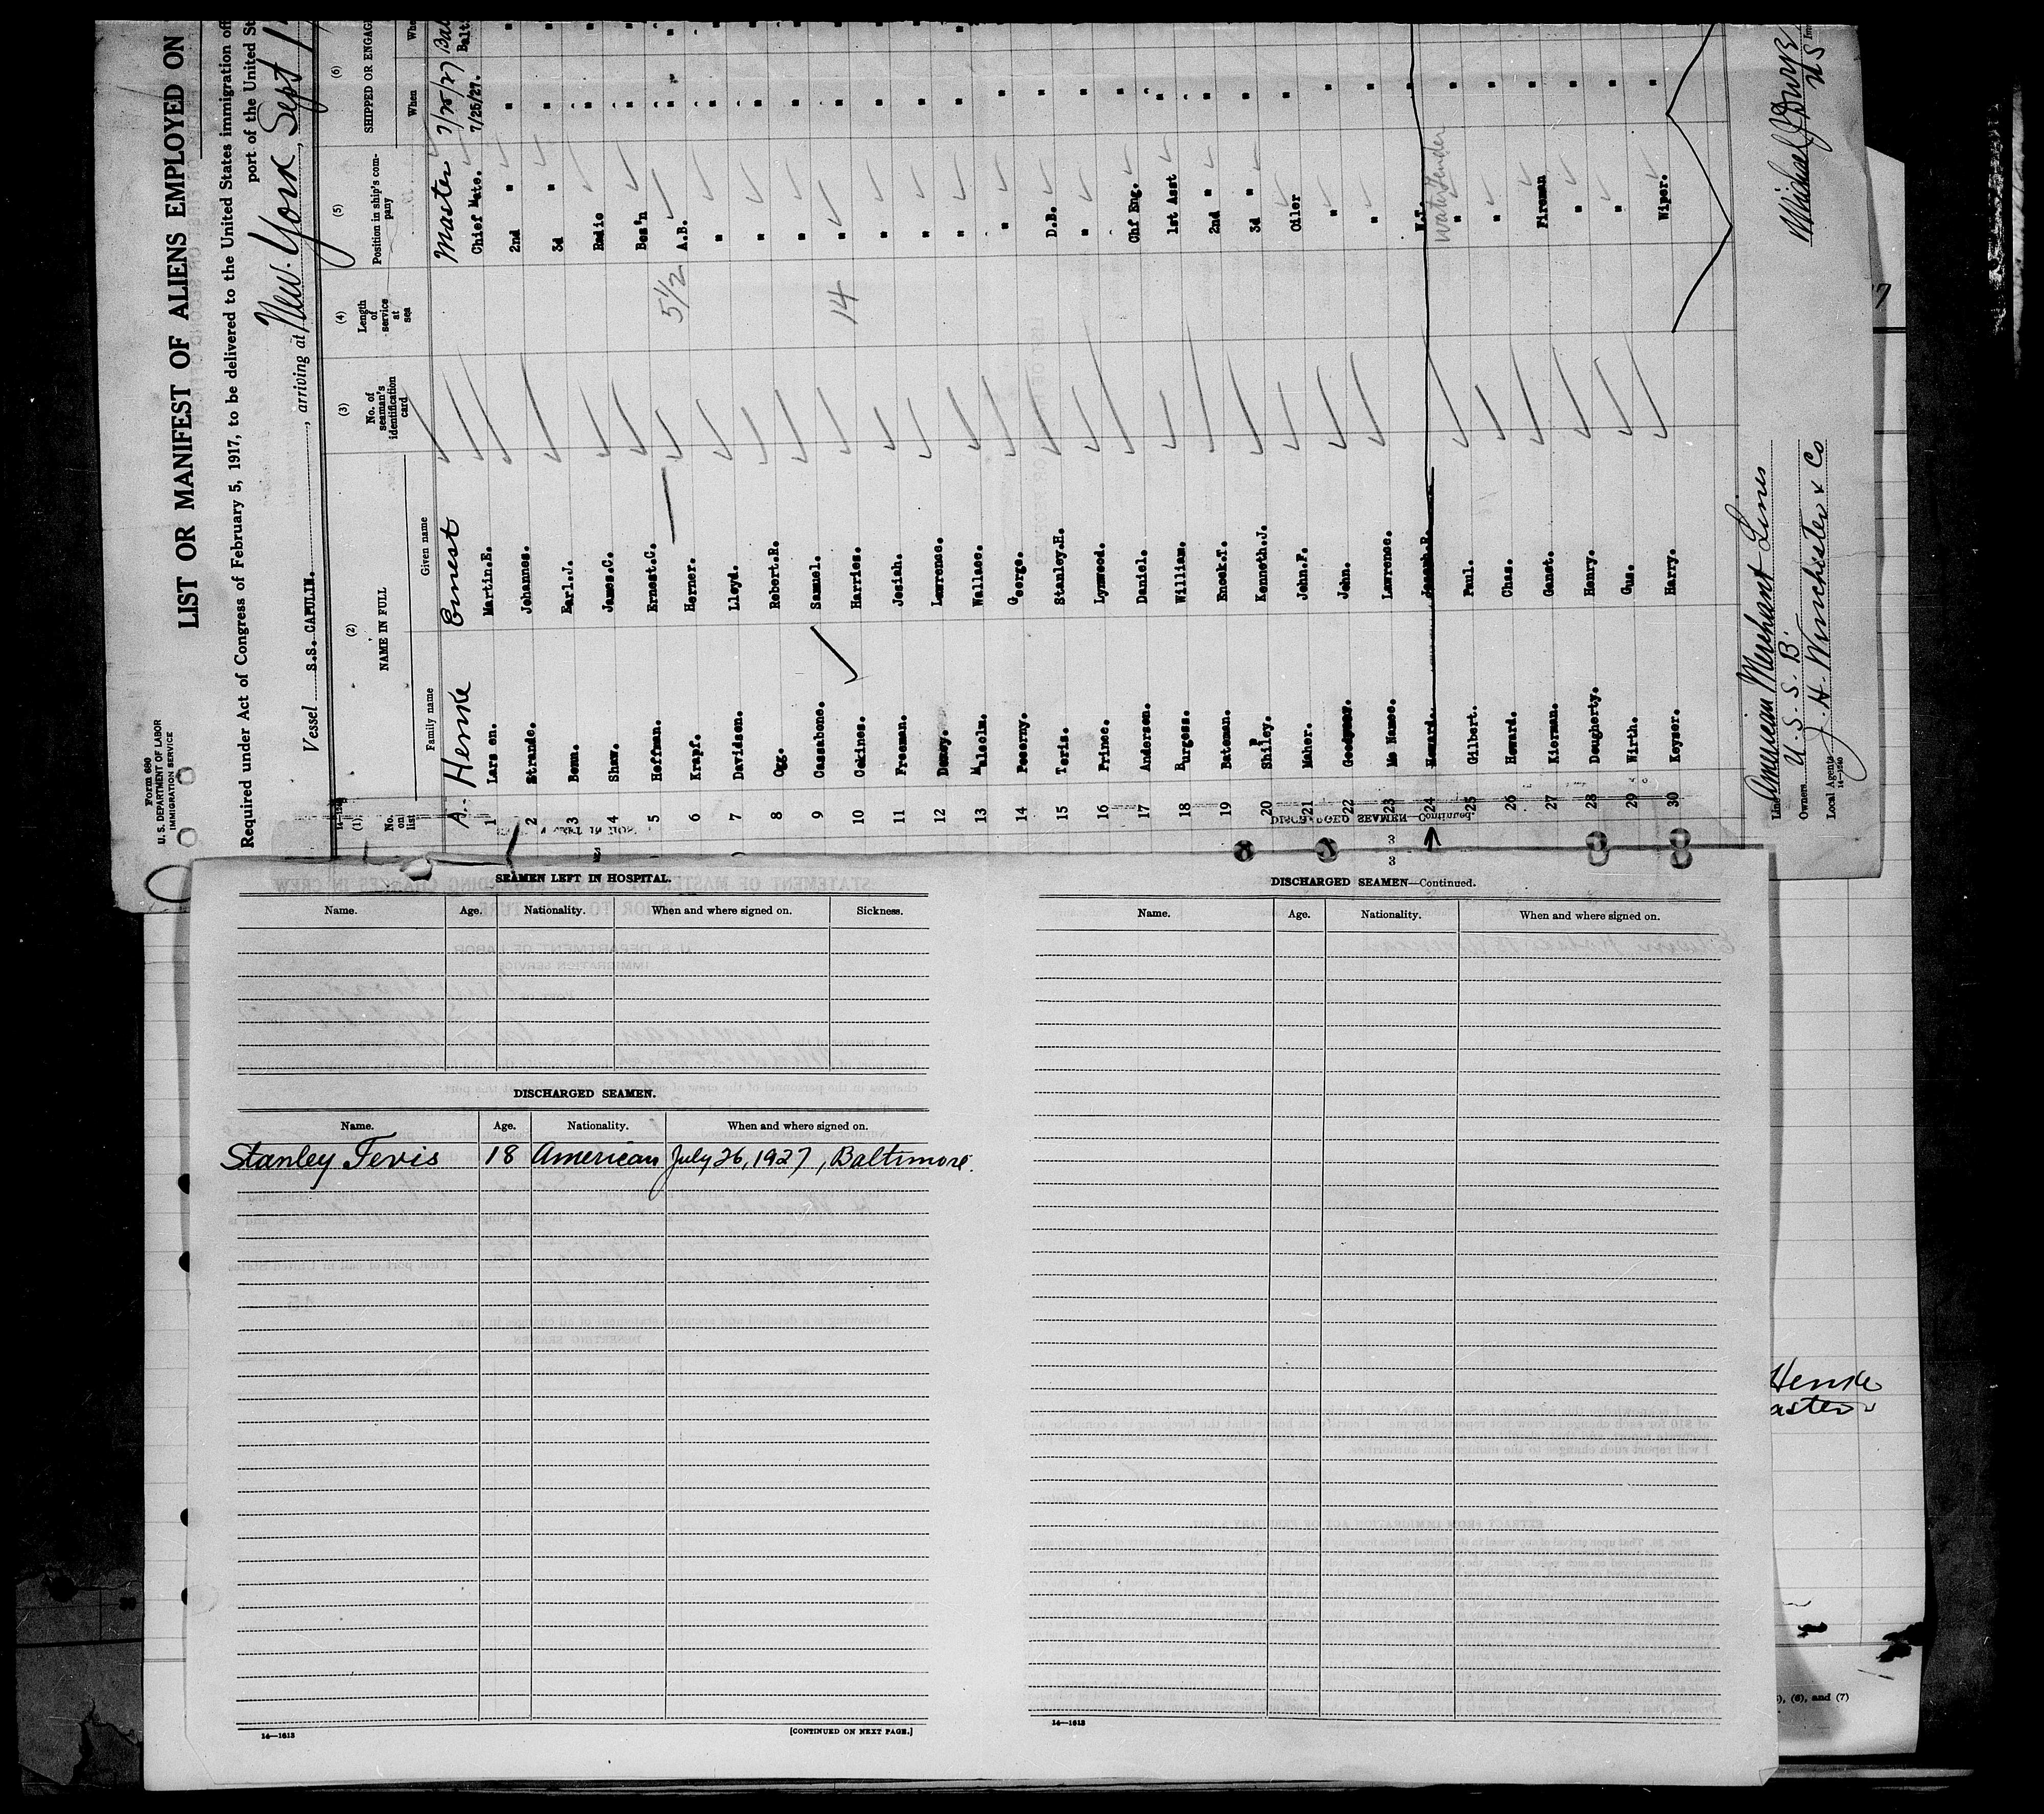 Form 680
U. S. DEPARTMENT OF LABOR
IMMIGRATION SERVICE
LIST OR MANIFEST OF ALIENS EMPLOYED ON
Required under Act of Congress of February 5, 1917, to be delivered to the United States immigration
port of the United
Vessel S.S. CAPULIN. , arriving at New York, Sept
(1) (2) (3) (4) (5) (6)
No. on list NAME IN FULL No. of seaman's identification card Length of service at sea Position in ship's company SHIPPED OR ENGAG
Family name Given name When
A. Henke Ernest Master 7/25/27
1 Larsen. Martin.E. Chief Mate. 7/25/27. Balt
2 Strande. Johannes. 2nd " "
3 Benn. Earl.J. 3d " "
4 Shaw. James.C. Radio "
5 Hoffman. Ernest.C. Bos'n "
6 Krapf. Herner. 5 1/2 A.B. "
7 Davidson. Lloyd. " "
8 Ogg. Robert.R. " "
9 Cassabone. Samuel. " "
10 Cokines. Harries. 14 " "
11 Freeman. Josiah. " "
12 Lawrence. " "
13 Malcolm. Wallace. " "
14 Pecorny. George. " "
15 Teris. Stanley.H. D.B. "
16 Prince. Lynwood. " "
17 Andersen. Daniel. Chf Eng. "
18 Burgess. William. 1st Asst "
19 Bateman. Enock.T. 2nd " "
20 Shipley. Kenneth.J. 3d " "
21 Maher. John.F. Oiler "
22 John. " "
23 Mc Namee. Lawrence. " "
24 Howard. Joseph.R. W.T. "
25 Gilbert. Paul. " " Water Tender
26 Howard. Chas. " "
27 Kiernan. Ganet. Fireman "
28 Dougherty. Henry. " "
29 Wirth. Gus. " "
30 Keyser. Harry. Wiper. "
Line American Merchant Lines
Owners U. S. S. B.
Local Agents J. H. Winchester & Co
14—1240
SEAMEN LEFT IN HOSPITAL.
Name. Age. Nationality. When and where signed on. Sickness.
DISCHARGED SEAMEN.
Name. Age. Nationality. When and where signed on.
Stanley Tevis 18 American July 26, 1927, Baltimore.
14—1613
[CONTINUED ON NEXT PAGE.]
DISCHARGED SEAMEN—Continued.
Name. Age. Nationality. When and where signed on.
14—1613
Henke
aster
, (6), and (7)